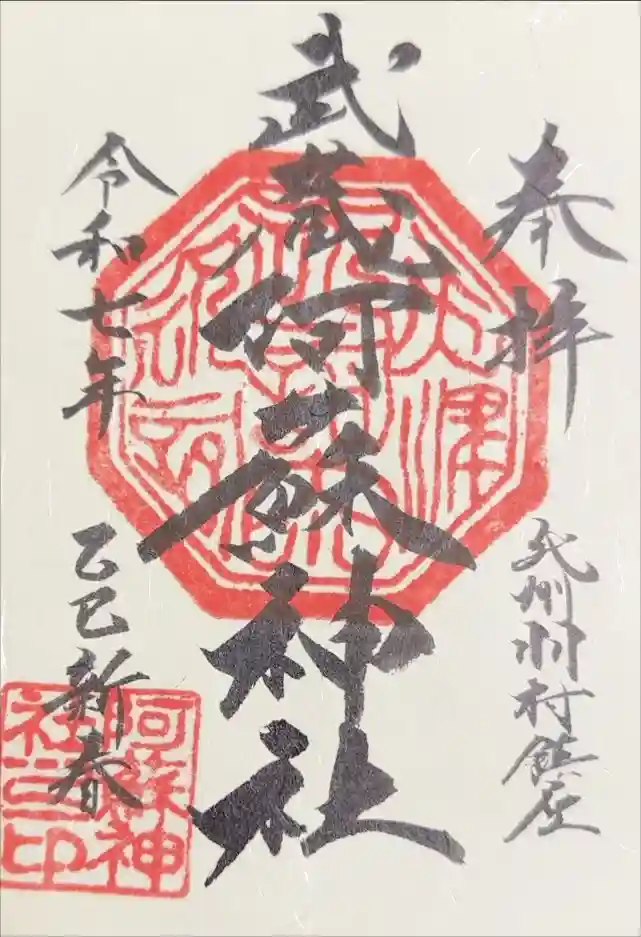 奉拝
武州羽村鎮座
武蔵阿蘇神社
令和七年
乙巳新春
阿蘇神社之印